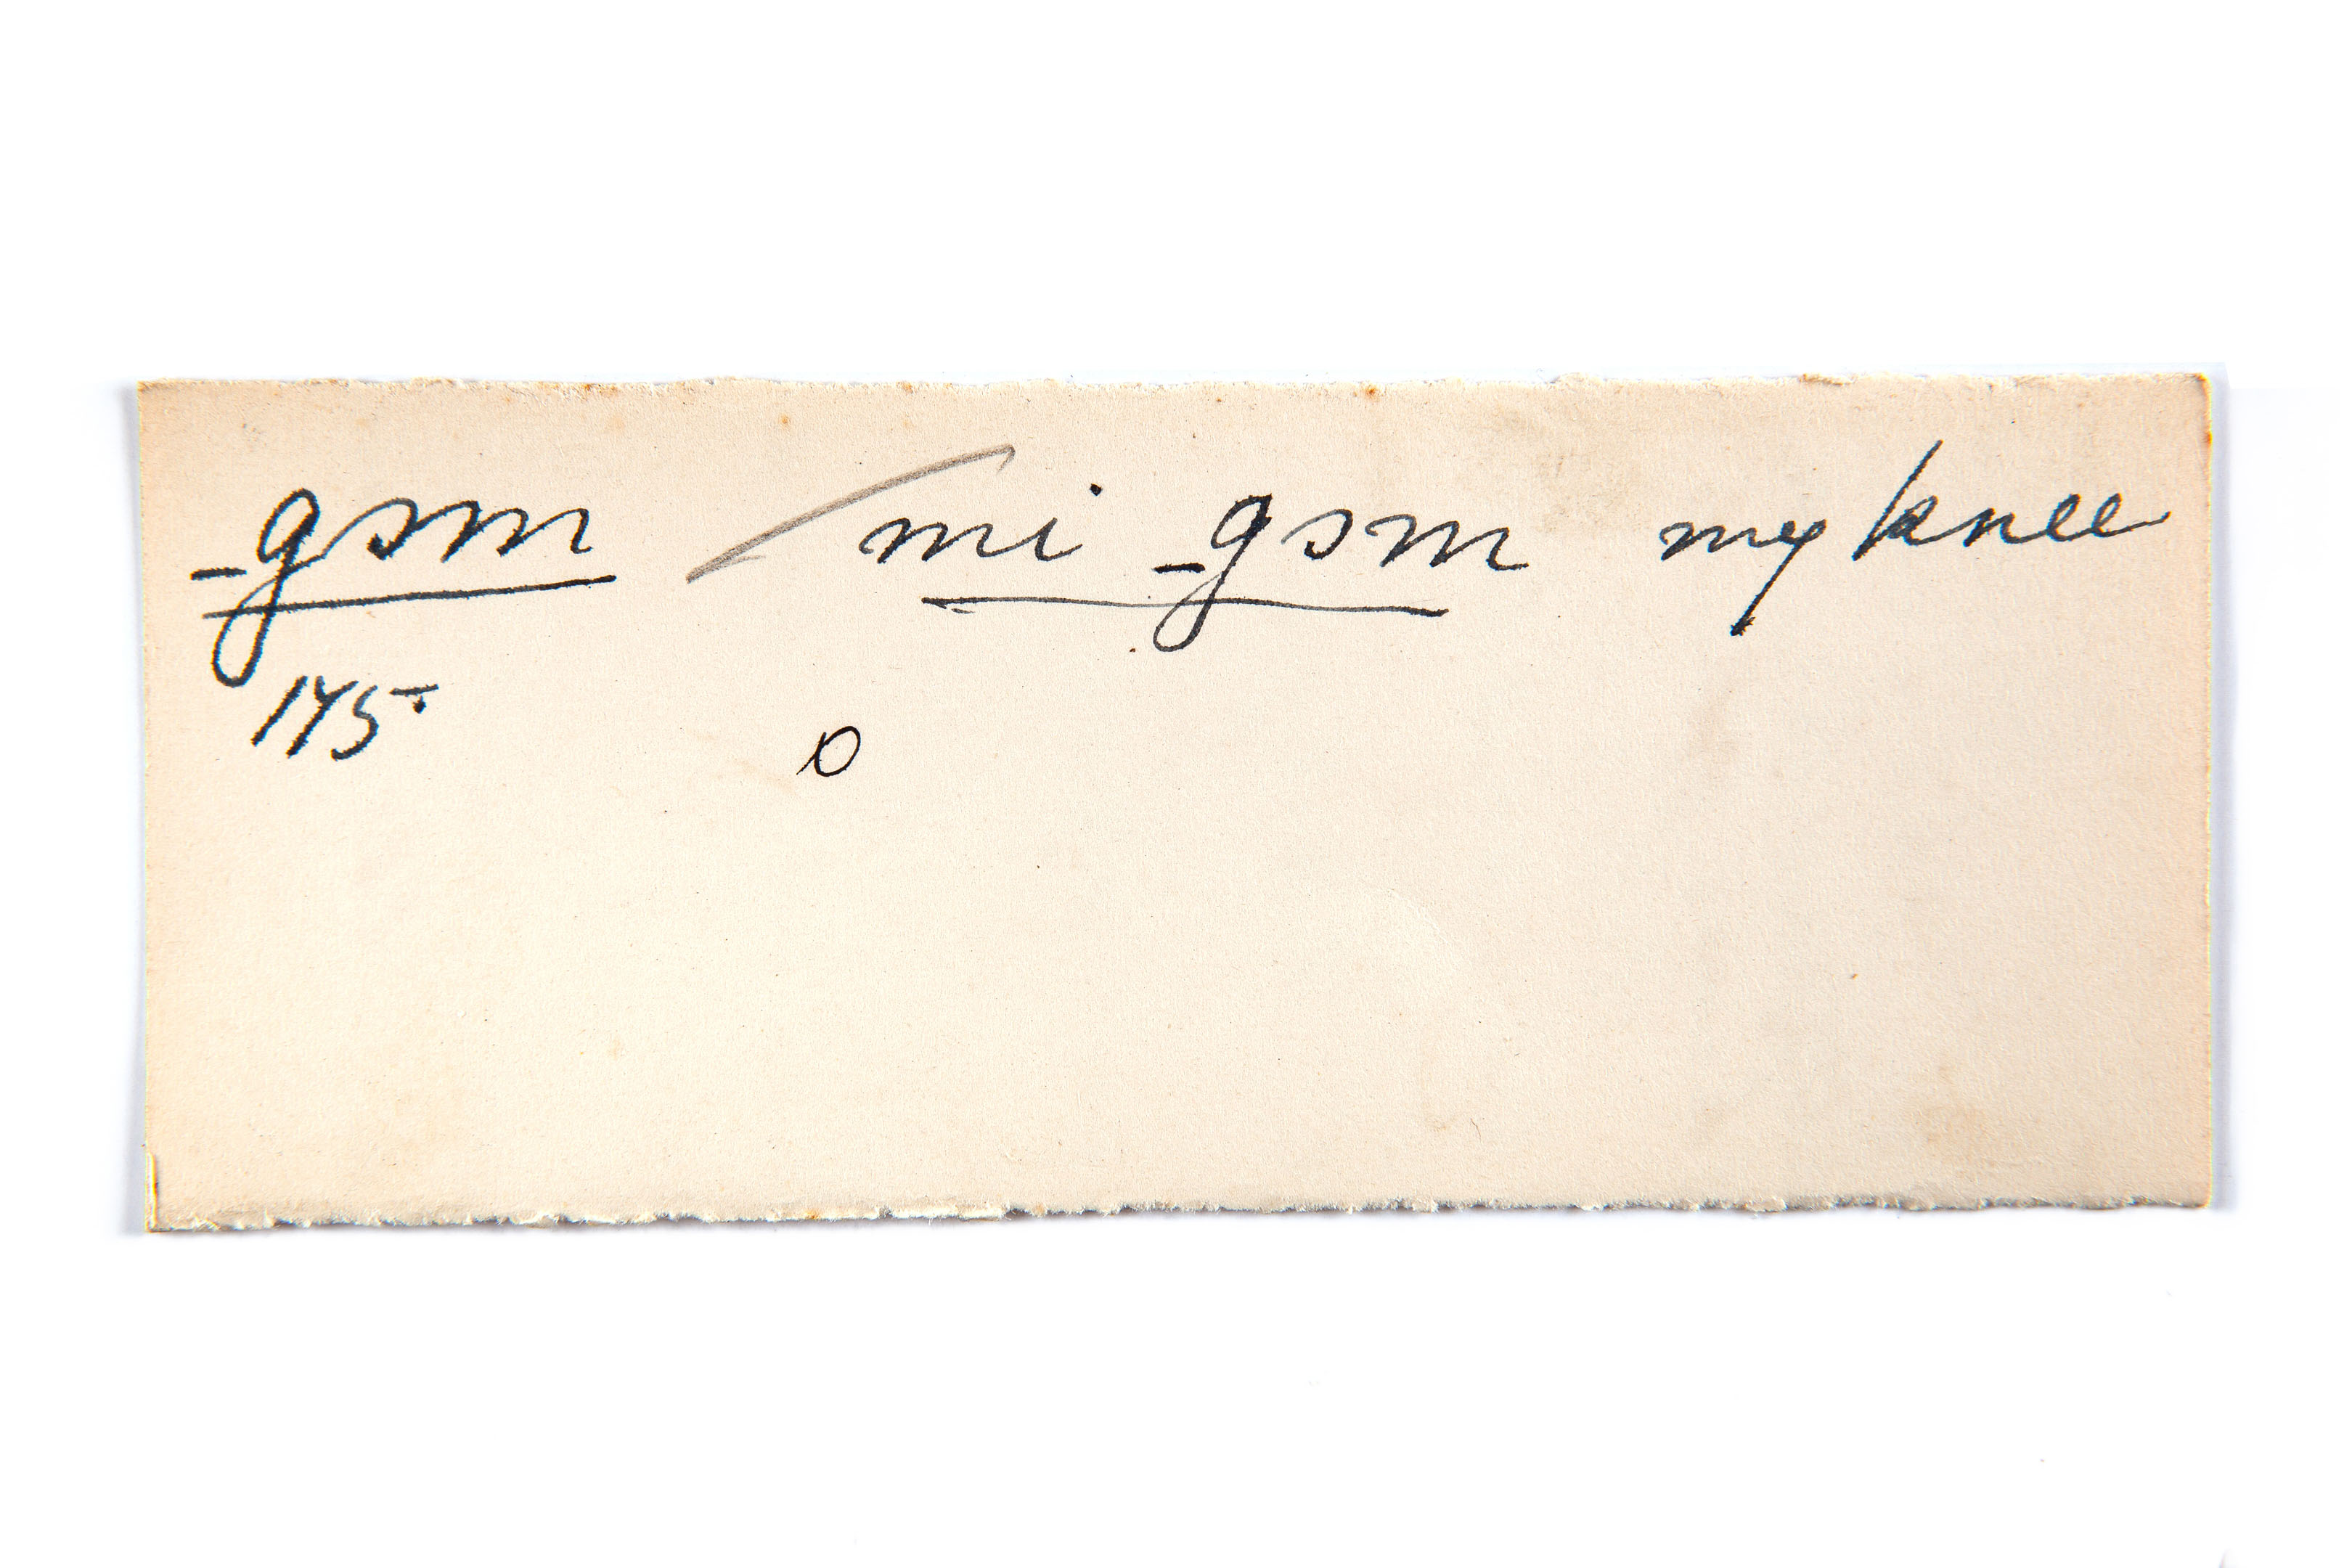 -gsm mi -gsm my knee
145
o